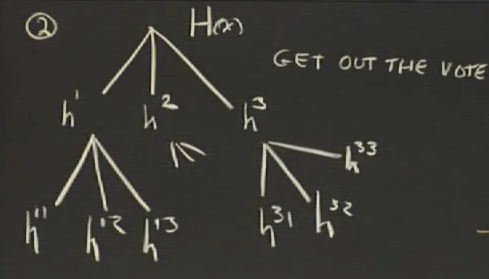 ② H(x)
GET OUT THE VOTE
h¹ h² h³
h³³
h¹¹ h¹² h¹³ h³¹ h³²